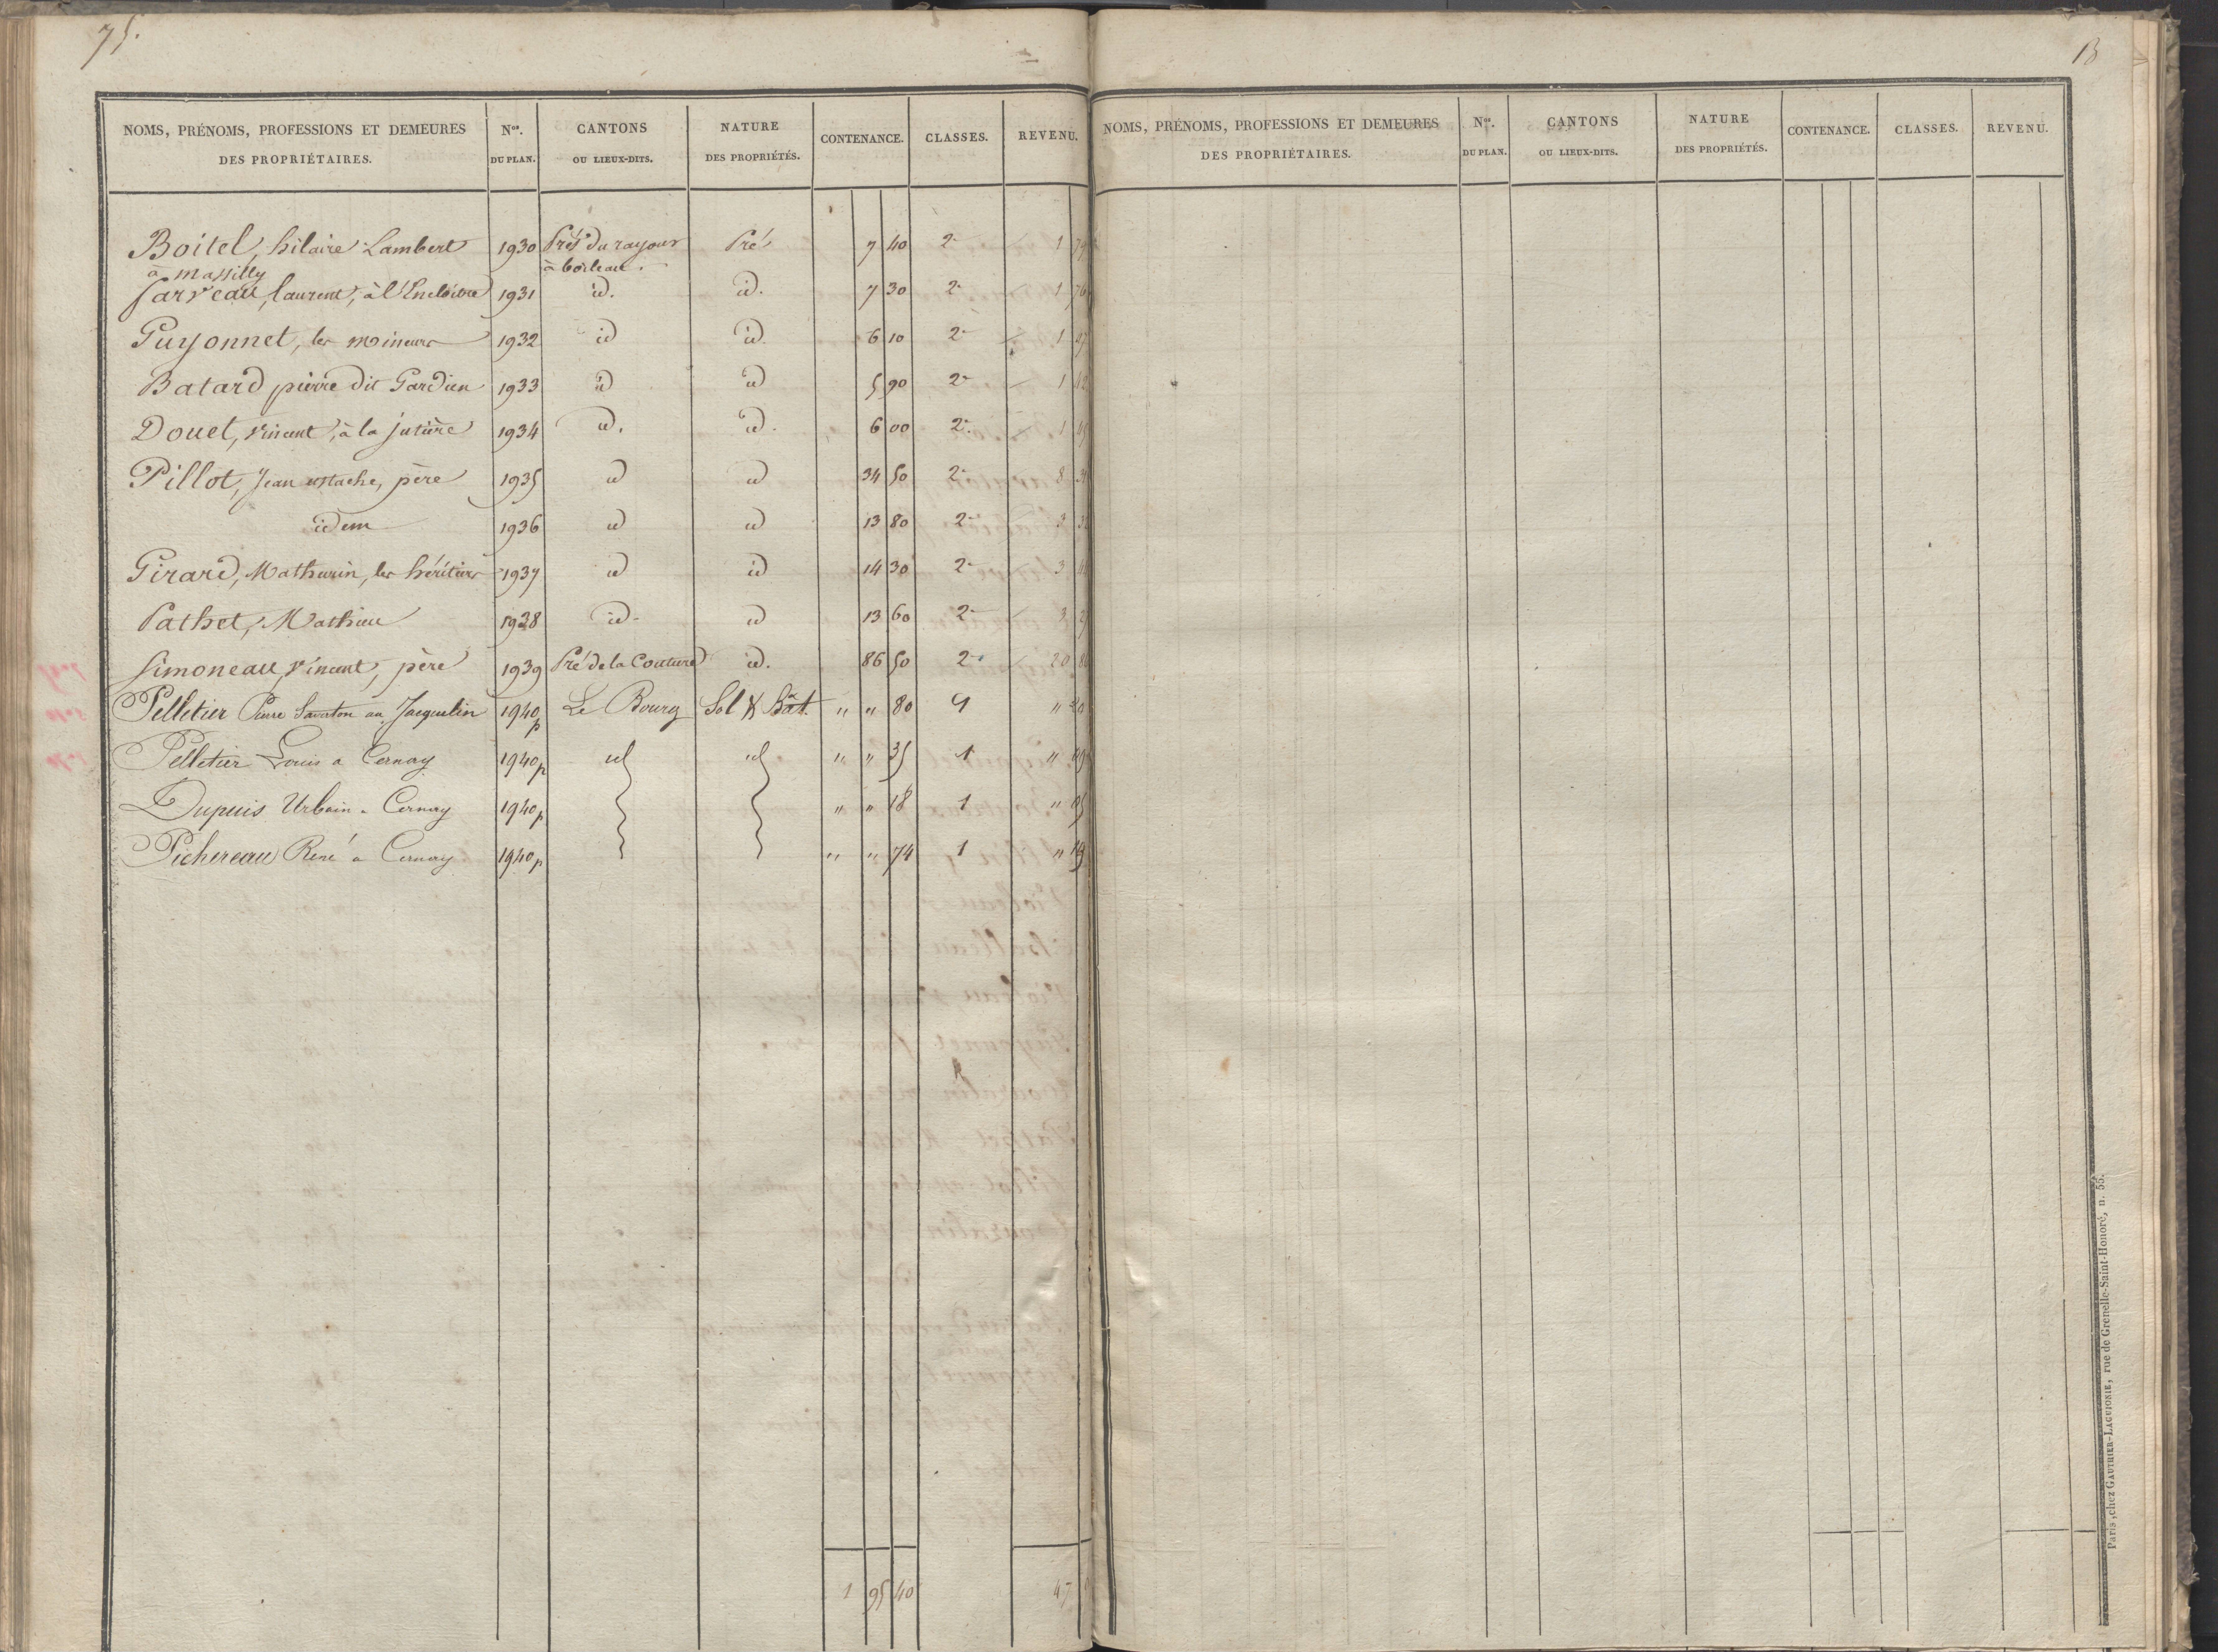 75.
NOMS, PRÉNOMS, PROFESSIONS ET DEMEURES DES PROPRIÉTAIRES. Nos. DU PLAN. CANTONS OU LIEUX-DITS. NATURE DES PROPRIÉTÉS. CONTENANCE. CLASSES. REVENU.
Boitel, hilaire Lambert 1930 Prés du rayour Pré 7 40 2e 1
à massilly à boileau.
Sarveau, laurent, à l'Encloitre 1931 id. id. 7 30 2e 1 76
Guyonnet, les mineurs 1932 id id. 6 10 2e 1
Batard pierre dit Gardien 1933 id id 5 90 2e 1
Douet, vincent, à la jutière 1934 id. id. 6 00 2e 1
Pillot, Jean ustache, père 1935 id id 34 50 2e 8
idem 1936 id id 13 80 2e 3
Girard, Mathurin, les héritiers 1937 id id 14 30 2e 3
Pathet, Mathieu 1938 id. id 13 60 2e 3
Simoneau, vincent, père 1939 Pré de la Couture id. 86 50 2e 20
Pelletier Pierre Savaton au Jacquelin 1940p Le Bourg Sol & Bât. " " 80 1 " 20
Pelletier Louis a Cernay 1940p id id " " 35 1 " 09
Dupuis Urbain a Cernay 1940p " " 18 1 " 05
Pichereau René a Cernay 1940p " " 74 1 " 19
1 95 40 47
NOMS, PRÉNOMS, PROFESSIONS ET DEMEURES DES PROPRIÉTAIRES. Nos. DU PLAN. CANTONS OU LIEUX-DITS. NATURE DES PROPRIÉTÉS. CONTENANCE. CLASSES. REVENU.
Paris, chez GAUTHIER-LAGUIONIE, rue de Grenelle-Saint-Honoré, n. 55.